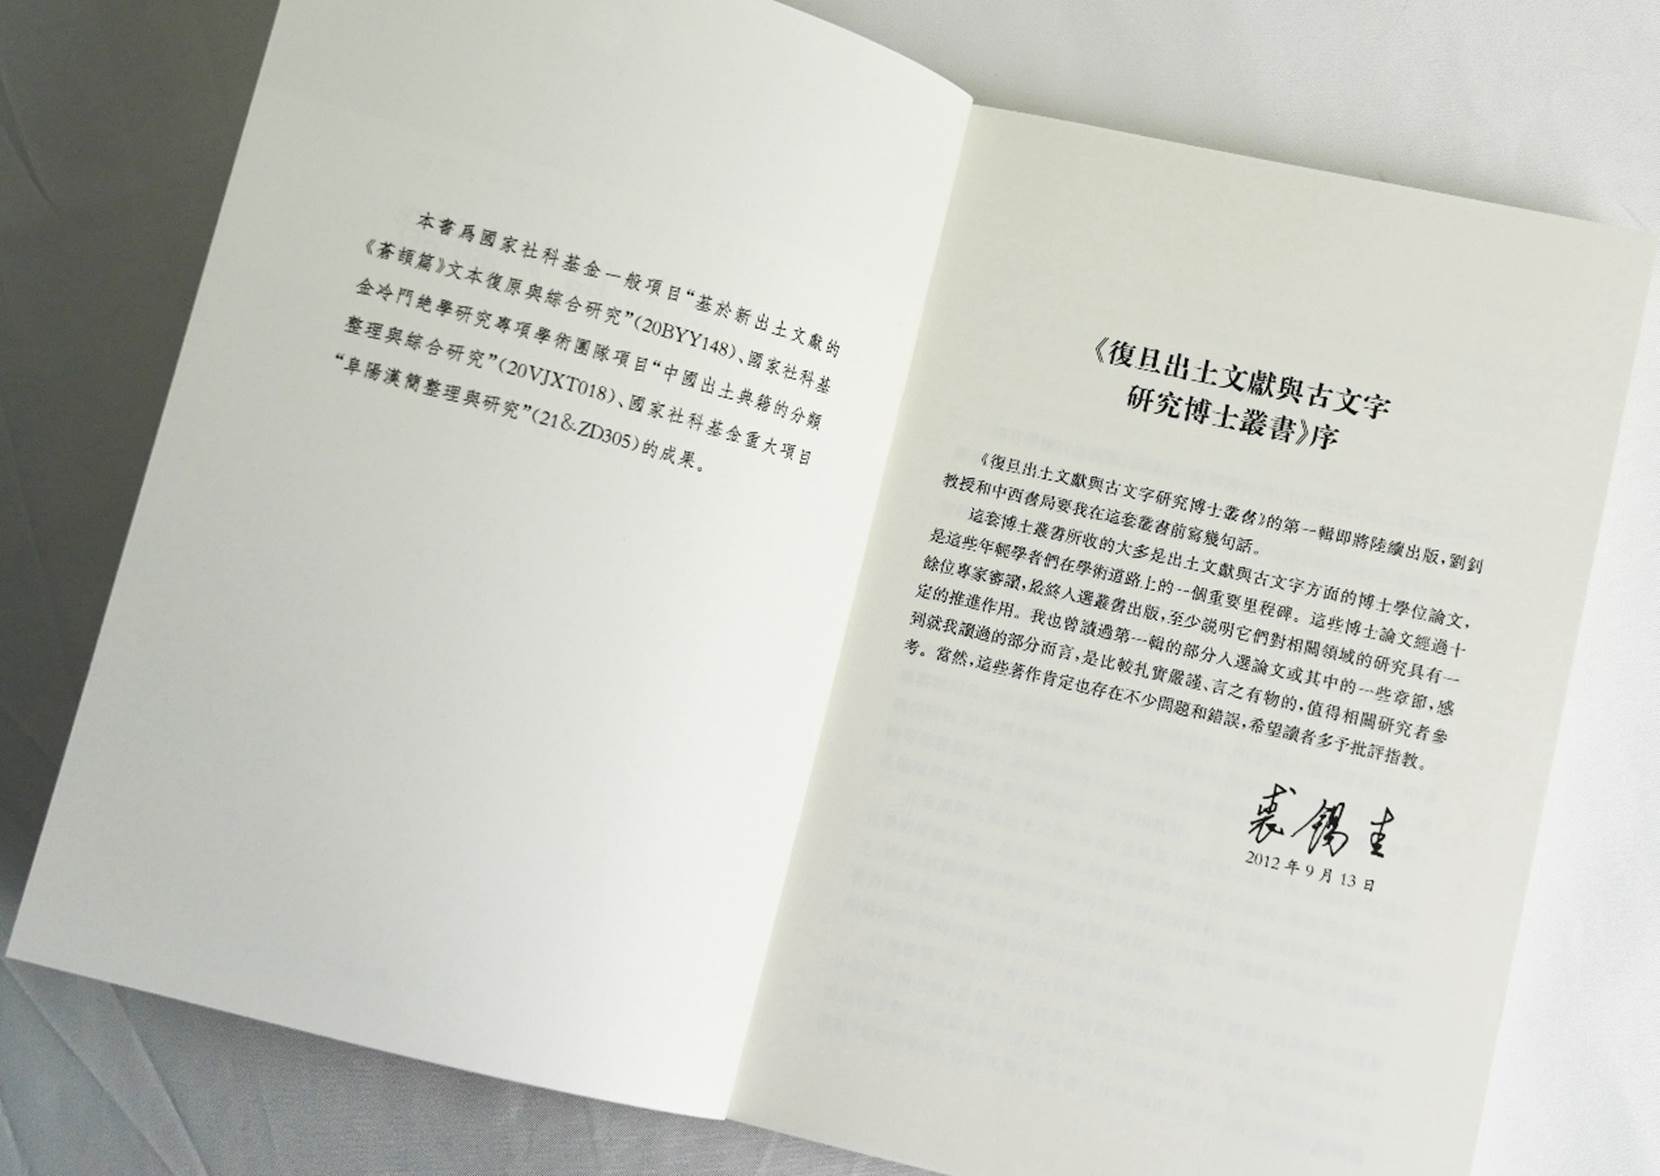 本書爲國家社科基金一般項目“基於新出土文獻的
《蒼頡篇》文本復原與綜合研究”(20BYY148)、國家社科基
金冷門絶學研究專項學術團隊項目“中國出土典籍的分類
整理與綜合研究”(20VJXT018)、國家社科基金重大項目
“阜陽漢簡整理與研究”(21&ZD305)的成果。
《復旦出土文獻與古文字
研究博士叢書》序
《復旦出土文獻與古文字研究博士叢書》的第一輯即將陸續出版,劉釗
教授和中西書局要我在這套叢書前寫幾句話。
這套博士叢書所收的大多是出土文獻與古文字方面的博士學位論文,
是這些年輕學者們在學術道路上的一個重要里程碑。這些博士論文經過十
餘位專家審讀,最終入選叢書出版,至少説明它們對相關領域的研究具有一
定的推進作用。我也曾讀過第一輯的部分入選論文或其中的一些章節,感
到就我讀過的部分而言,是比較扎實嚴謹、言之有物的,值得相關研究者參
考。當然,這些著作肯定也存在不少問題和錯誤,希望讀者多予批評指教。
裘錫圭
2012年9月13日